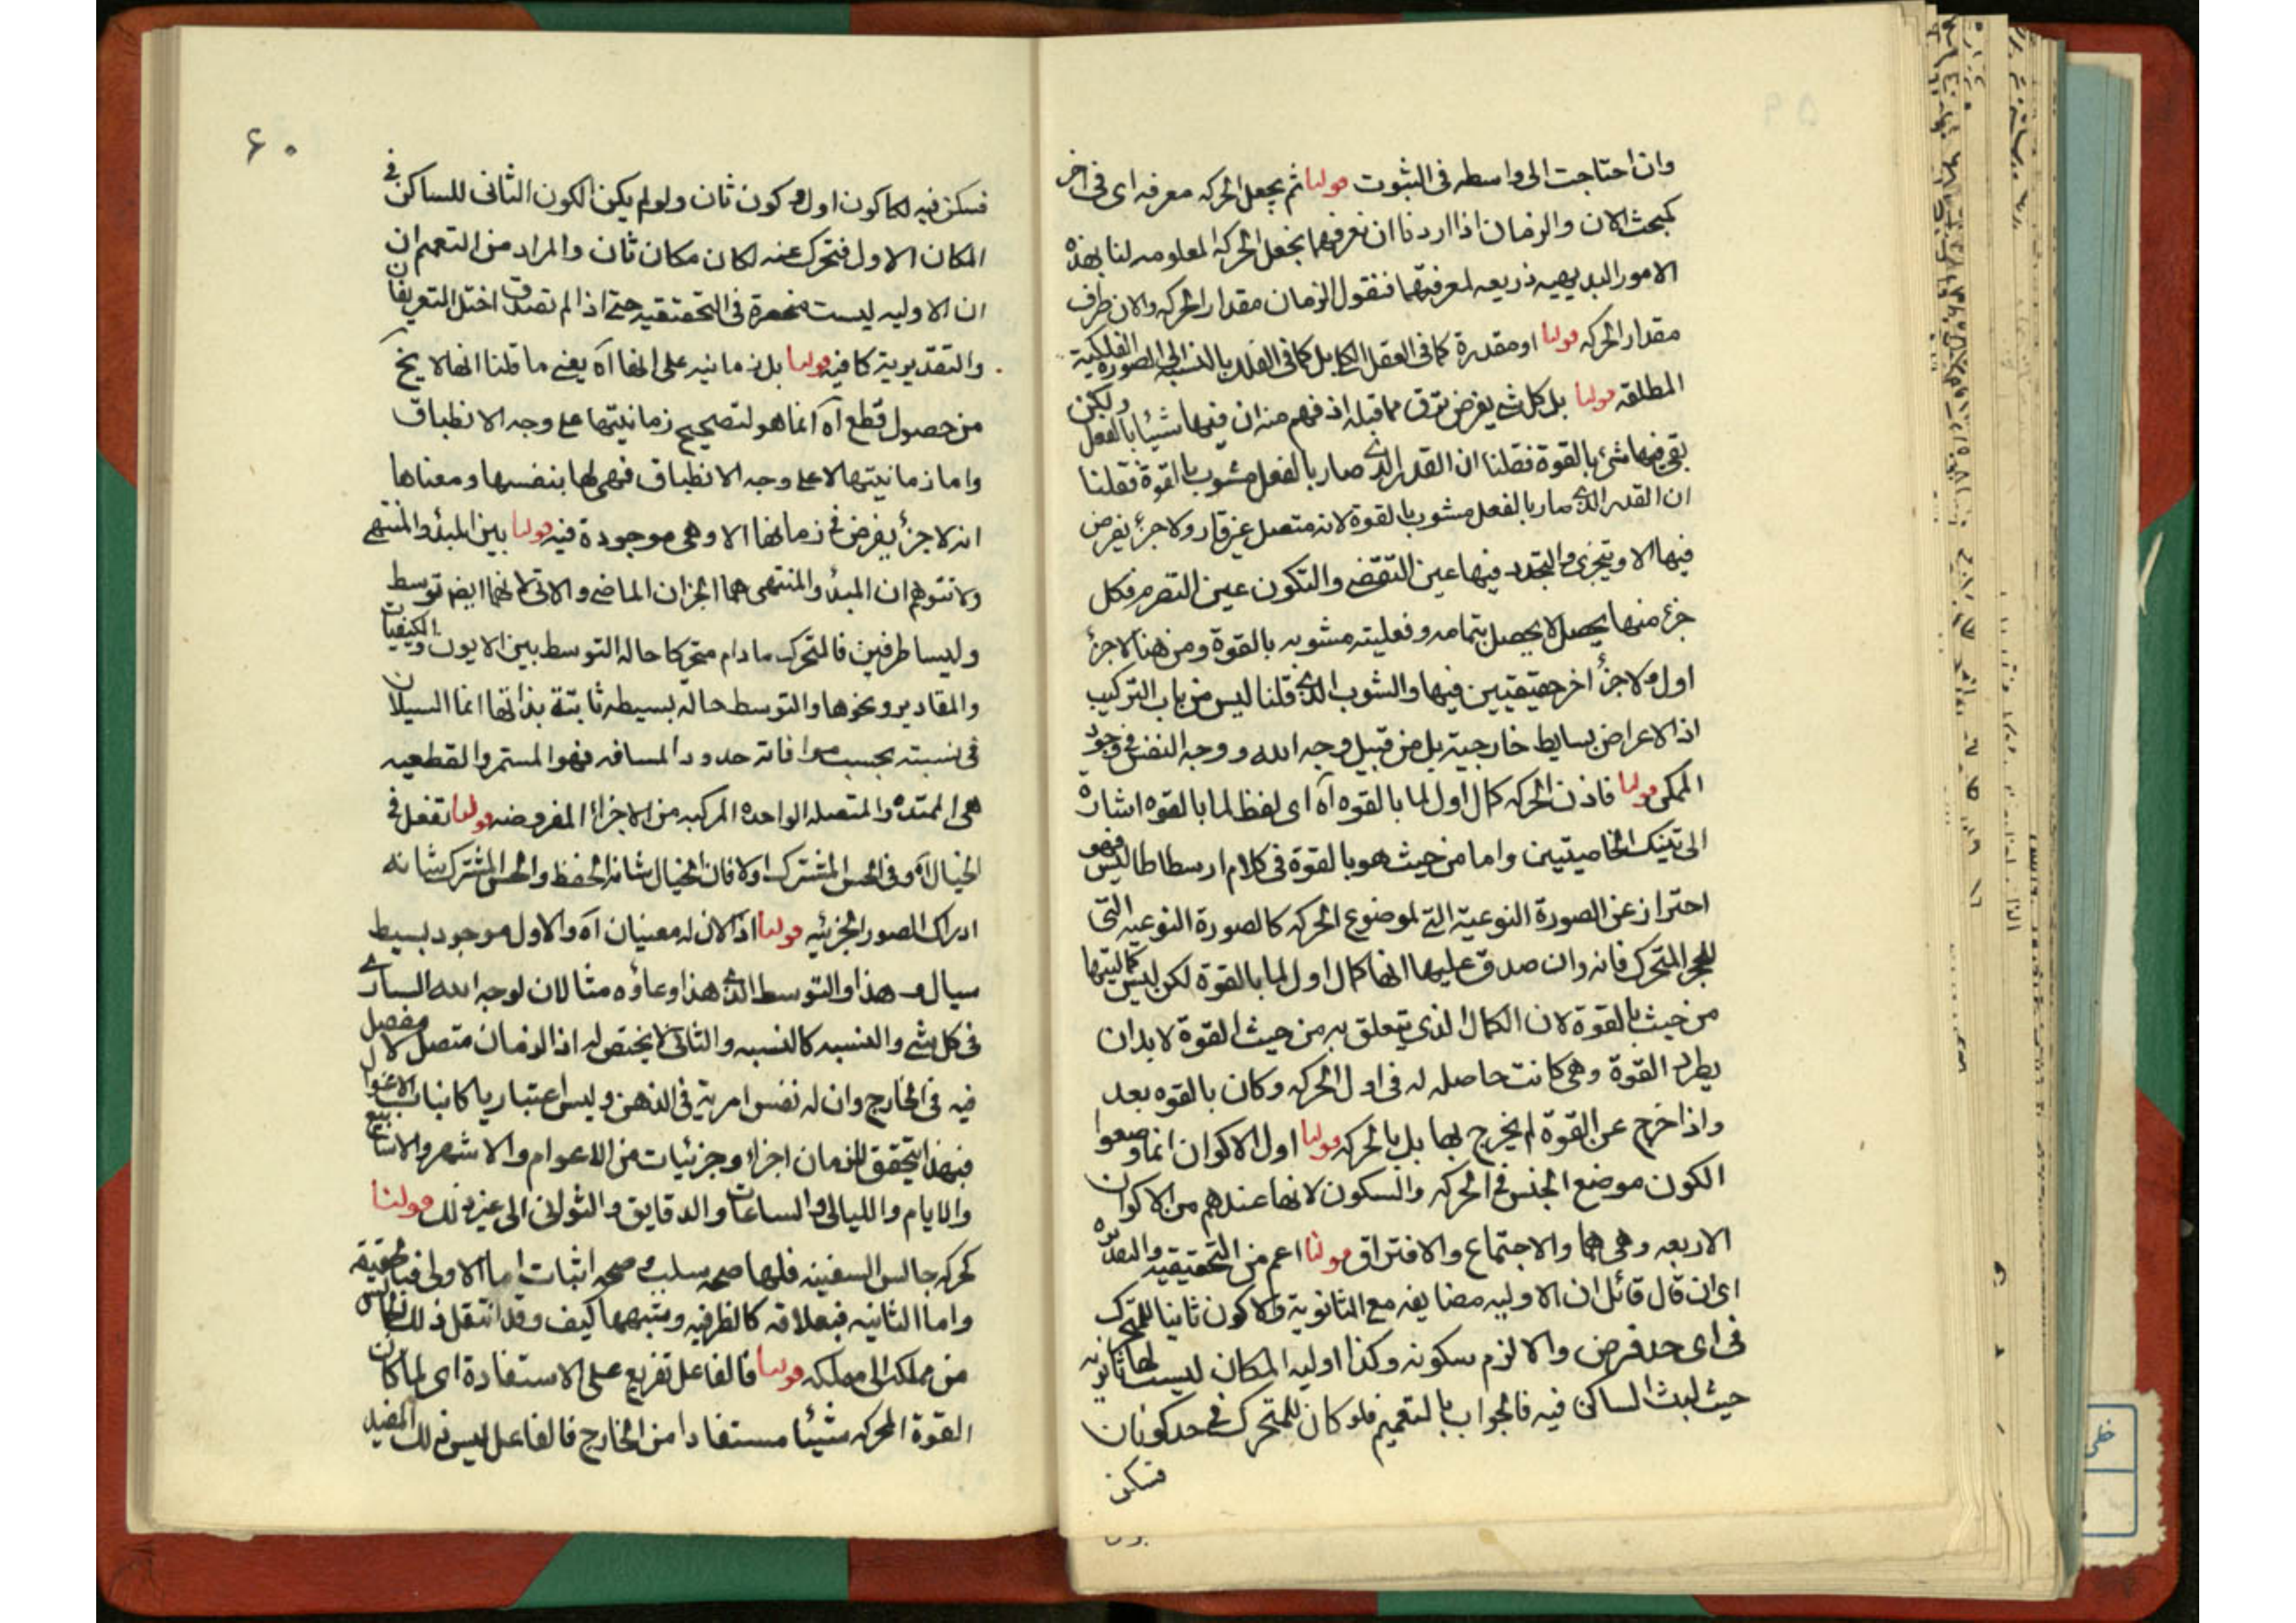 وان احتاجت الى واسطه فى الثبوت قولنا ثم يجعل الحركه معرفه اى فى اخر
كمبحث الان والزمان اذا اردنا ان نعرفهما نجعل الحركه المعلومه لنا بهذه
الامور البديهيه ذريعه لمعرفتهما فنقول الزمان مقدار الحركه والان طرف
مقدار الحركه قولنا او مقدرة كما فى العقل الكل بل كما فى الفلك بالنسبه الى الصورة الفلكية
المطلقه قولنا بل كل شئ يفرض ترق مما قبله اذ فهم منه ان فيها شيئا بالفعل ولكن
بقى فيها شئ بالقوة فقلنا ان القدر الذى صار بالفعل مشوب بالقوة فقلنا
ان القدر الذى صار بالفعل مشوب بالقوة لانه متصل غير قار ولا جزء يفرض
فيها الا ويتجزى والتجدد فيها عين التقضى والتكون عين التصرم فكل
جزء منها يحصل لا يحصل بتمامه وفعليته مشوبه بالقوة ومن هنا لا جزء
اول ولا جزء اخر حقيقيين فيها والشوب الذى قلنا ليس من باب التركيب
اذ الاعراض بسايط خارجية بل من قبيل وجه الله ووجه النفس فى وجود
الممكن قولنا فاذن الحركه كمال اول لما بالقوه آه اى لفظ لما بالقوه اشارة
الى تينك الخاصيتين واما من حيث هو بالقوة فى كلام ارسطاطاليس فهو
احتراز عن الصورة النوعية التى لموضوع الحركه كالصورة النوعيه التى
للحجر المتحرك فانه وان صدق عليها انها كمال اول لما بالقوة لكن ليس كماليتها
من حيث بالقوة لان الكمال الذى يتعلق به من حيث القوة لا بد ان
يطرد القوة وهى كانت حاصله له فى اول الحركه وكان بالقوه بعد
واذا خرج عن القوة لم يخرج بها بل بالحركه قولنا اول الاكوان انما وضعوا
الكون موضع الجنس فى الحركه والسكون لانها عندهم من الاكوان
الاربعه وهى هما والاجتماع والافتراق قولنا اعم من التحقيقيه والتقديريه
اى ان قال قائل ان الاوليه مضايفه مع الثانوية ولا كون ثانيا للمتحرك
فى اى حد فرض والا لزم سكونه وكذا اوليه المكان ليست لها ثانويه
حيث لبث الساكن فيه فالجواب بالتعميم فلو كان للمتحرك فى حد كونان
فسكن
۶۰
فسكن فيه لكا كون اول و كون ثان ولو لم يكن الكون الثانى للساكن فى
المكان الاول فتحرك عنه لكان مكان ثان والمراد من التعميم ان
ان الاوليه ليست منحصرة فى التحقيقيه حتى اذا لم تصدق اختل التعريفان
والتقديرية كافيه قولنا بل زمانيه على انها آه يعنى ما قلنا انها لا يخ
من حصول قطع آه انما هو لتصحيح زمانيتها على وجه الانطباق
واما زمانيتها لا على وجه الانطباق فهى لها بنفسها ومعناها
انه لا جزء يفرض فى زمانها الا وهى موجودة فيه قولنا بين المبدء والمنتهى
ولا نتوهم ان المبدء والمنتهى هما الجزءان الماضى والاتى لانهما ايضا توسط
وليسا طرفين فالمتحرك ما دام متحركا حاله التوسط بين الايون والكيفيات
والمقادير ونحوها والتوسط حاله بسيطه ثابتة بذاتها انما السيلان
فى نسبته بحسب موافاته حدود المسافه فهو المستمر والقطعيه
هى الممتده والمتصله الواحدة المركبه من الاجزاء المفروضه قولنا تفعل فى
الخيال آه وفى الحس المشترك اولا فان الخيال شانه الحفظ والحس المشترك شانه
ادراك الصور الجزئيه قولنا اذ الان له معنيان آه والاول موجود بسيط
سيال و هذا والتوسط الذى هذا وعاؤه مثالان لوجه الله السارى
فى كل شئ والنسبه كالنسبه والثانى لا يختص له اذ الزمان متصل لا مفصل
فيه فى الخارج وان له نفس امرية فى الذهن وليس اعتباريا كانياب الاغوال
فبهذا يتحقق للزمان اجزاء وجزئيات من الاعوام والاشهر والاسابيع
والايام والليالى والساعات والدقايق والثوانى الى غير ذلك قولنا
كحركه جالس السفينه فلها صحه سلب و صحه اثبات اما الاولى فبالحقيقه
واما الثانيه فبعلاقه كالظرفيه وشبهها كيف وقد انتقل ذلك الجالس
من مملكه الى مملكه قولنا فالفاعل تفريع على الاستفادة اى لما كان
القوة المحركه شيئا مستفادا من الخارج فالفاعل ليس ذلك المفيد
خطى